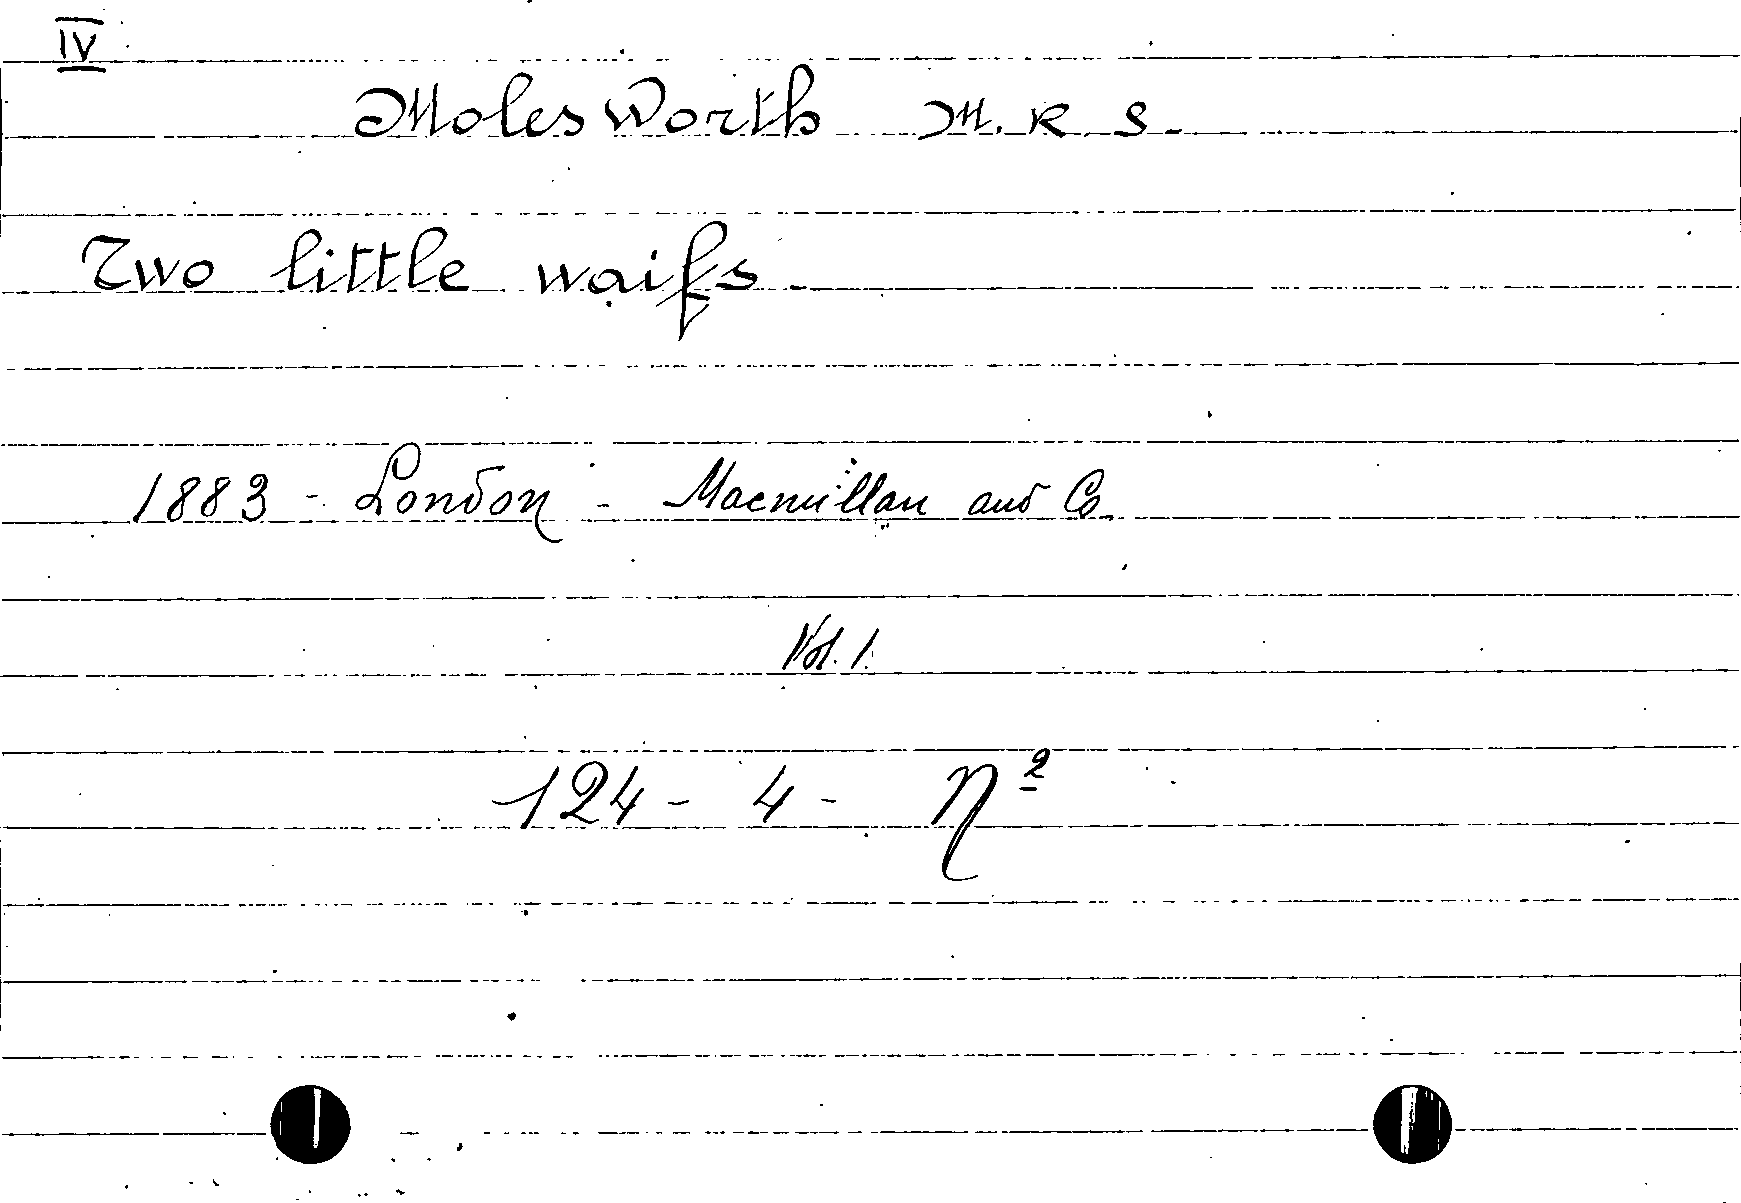 IV
MolesWorth M.R S.
Two little waifs.
1883 - London - Macmillan and Co.
Vol. 1.
124 - 4 - N²